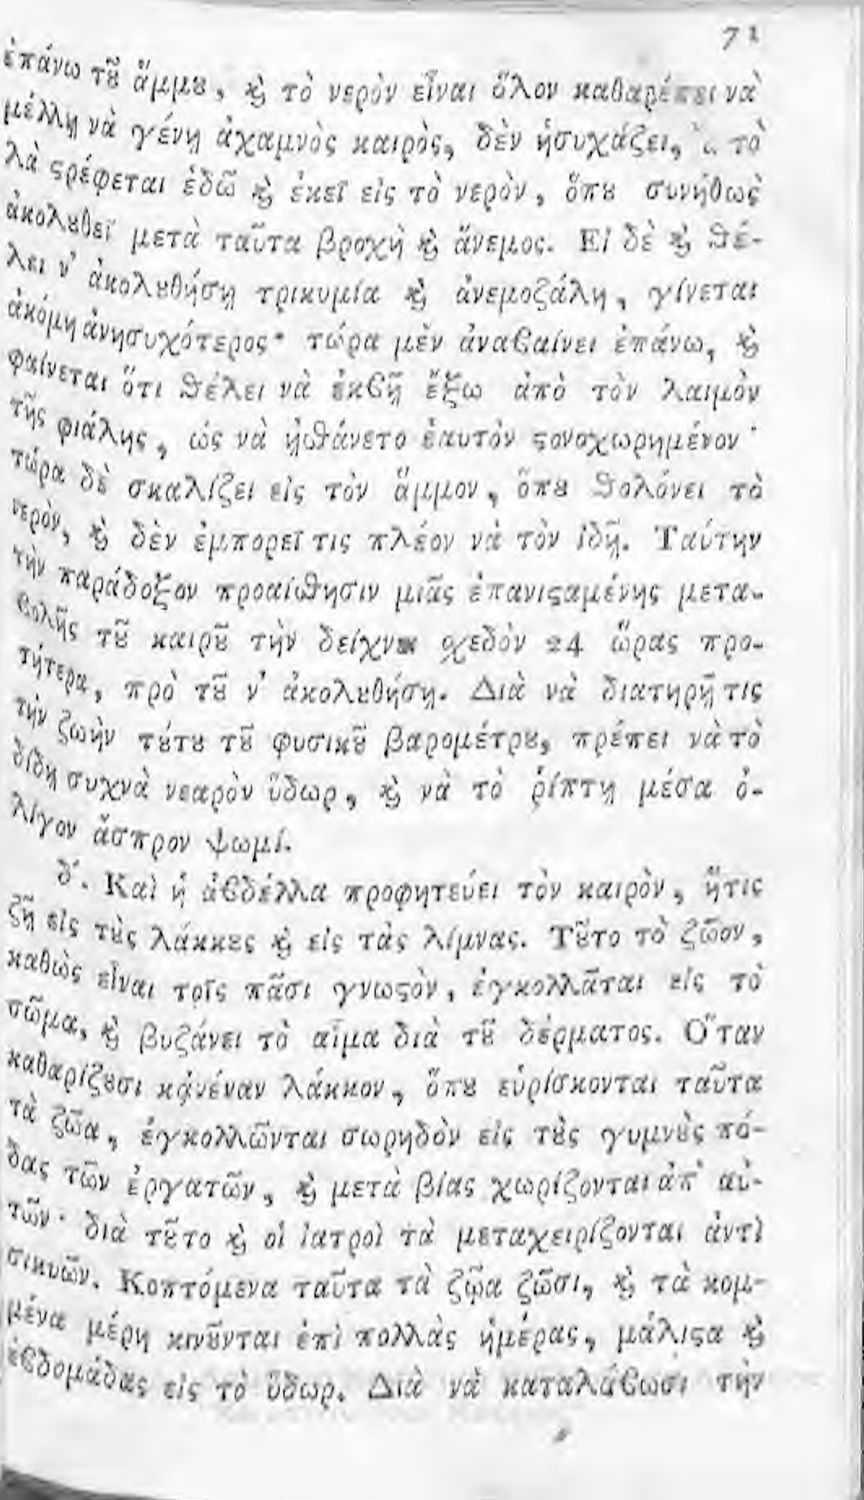 71
ἐπάνω τȣ͂ ἄμμȣ, ϗ τὸ νερὸν εἶναι ὅλον
μέλλῃ νὰ γένῃ ἀχαμνὸς καιρὸς, δὲν ἡσυχάζει, τὸ
λὰ ϛρέφεται ἐδῶ ϗ ἐκεῖ εἰς τὸ νερὸν, ὅπȣ συνήθως
ἀκολȣθεῖ μετὰ ταῦτα βροχὴ ϗ ἄνεμος. Εἰ δὲ ϗ θέ-
λει ν' ἀκολȣθήσῃ τρικυμία ϗ ἀνεμοζάλη, γίνεται
ἀκόμη ἀνησυχότερος· τώρα μὲν ἀναβαίνει ἐπάνω, ϗ
φαίνεται ὅτι θέλει νὰ ἐκβῇ ἔξω ἀπὸ τὸν λαιμὸν
τῆς φιάλης, ὡς νὰ ᾐσθάνετο ἑαυτὸν ϛονοχωρημένον·
τώρα δὲ σκαλίζει εἰς τὸν ἄμμον, ὅπȣ θολόνει τὸ
νερὸν, ϗ δὲν ἐμπορεῖ τις πλέον νὰ τὸν ἰδῇ. Ταύτην
τὴν παράδοξον προαίσθησιν μιᾶς ἐπανιϛαμένης μετα-
βολῆς τȣ͂ καιρȣ͂ τὴν σχεδὸν 24 ὥρας προ-
τήτερα, πρὸ τȣ͂ ν' ἀκολȣθήσῃ. Διὰ νὰ διατηρῇ τις
τὴν ζωὴν τȣ́τȣ τȣ͂ φυσικȣ͂ βαρομέτρȣ, πρέπει νὰ τὸ
δίδῃ συχνὰ νεαρὸν ὕδωρ, ϗ νὰ τὸ ῥίπτῃ μέσα ὀ-
λίγον ἄσπρον ψωμί.
δ'. Καὶ ἡ ἀβδέλλα προφητεύει τὸν καιρὸν, ἥτις
ζῇ εἰς τȣ̀ς λάκκȣς ϗ εἰς τὰς λίμνας. Τȣ͂το τὸ ζῶον,
καθὼς εἶναι τοῖς πᾶσι γνωϛὸν, ἐγκολλᾶται εἰς τὸ
σῶμα, ϗ βυζάνει τὸ αἷμα διὰ τȣ͂ δέρματος. Ὅταν
καθαρίζȣσι κᾀνέναν λάκκον, ὅπȣ εὑρίσκονται ταῦτα
τὰ ζῶα, ἐγκολλῶνται σωρηδὸν εἰς τȣ̀ς γυμνȣ̀ς πό-
δας τῶν ἐργατῶν, ϗ μετὰ βίας χωρίζονται ἀπ' αὐ-
τῶν· διὰ τȣ͂το ϗ οἱ ἰατροὶ τὰ μεταχειρίζονται ἀντὶ
σικυῶν. Κοπτόμενα ταῦτα τὰ ζῷα ζῶσι, ϗ τὰ κομ-
μένα μέρη κινȣ͂νται ἐπὶ πολλὰς ἡμέρας, μάλιϛα ϗ
ἑβδομάδας εἰς τὸ ὕδωρ. Διὰ νὰ καταλάβωσι τὴν